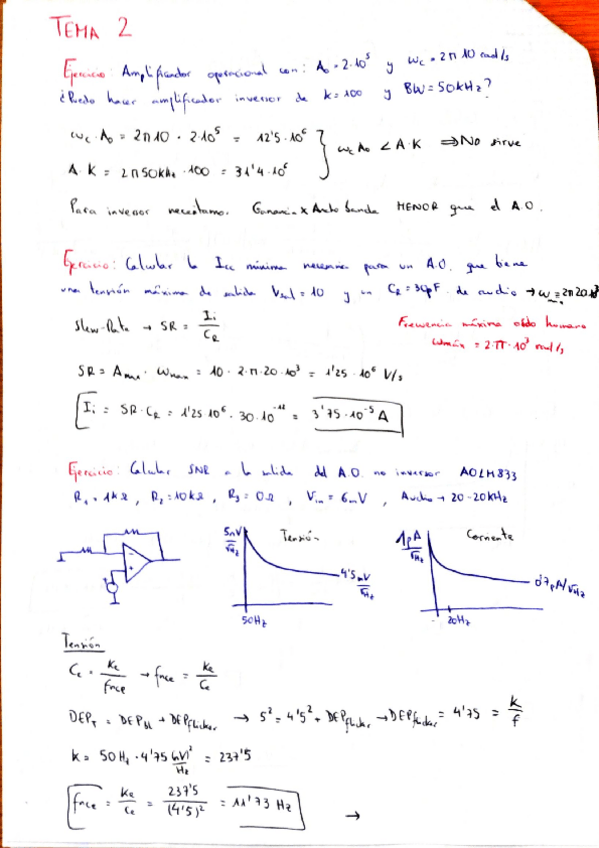 TEMA 2
Ejercicio: Amplificador operacional con: A₀ = 2·10⁵ y ω_c = 2π10 rad/s
¿Puedo hacer amplificador inversor de k=100 y BW=50kHz?
ω_c·A₀ = 2π10 · 2·10⁵ = 12'5·10⁶
ω_c A₀ < A·K ⇒ No sirve
A·K = 2π50kHz·100 = 31'4·10⁶
Para inversor necesitamos. Ganancia x Ancho banda MENOR que el A.O.
Ejercicio: Calcular la I_cc mínima necesaria para un A.O. que tiene
una tensión máxima de salida V_sal = 10 y un C_R = 30pF. de audio → ω = 2π20·10³
Slew-Rate → SR = I_i / C_R
Frecuencia máxima oído humano
ωmáx = 2·π·10³ rad/s
SR = A_max · ω_max = 10 · 2·π·20·10³ = 1'25·10⁶ V/s
I_i = SR·C_R = 1'25·10⁶·30·10⁻¹² = 3'75·10⁻⁵ A
Ejercicio: Calcular SNR a la salida del A.O. no inversor AOLM833
R₁ = 1kΩ, R₂ = 10kΩ, R₃ = 0Ω, V_in = 6mV, Audio → 20-20kHz
5nV/√Hz
Tensión
4'5nV/√Hz
50Hz
1pA/√Hz
Corriente
0'7pA/√Hz
20Hz
Tensión
C_e = K_e / fnce → fnce = K_e / C_e
DEP_T = DEP_bl + DEP_flicker → 5² = 4'5² + DEP_flicker → DEP_flicker = 4'75 = k/f
k = 50Hz · 4'75 (nV)²/Hz = 237'5
fnce = K_e / C_e = 237'5 / (4'5)² = 11'73 Hz
→